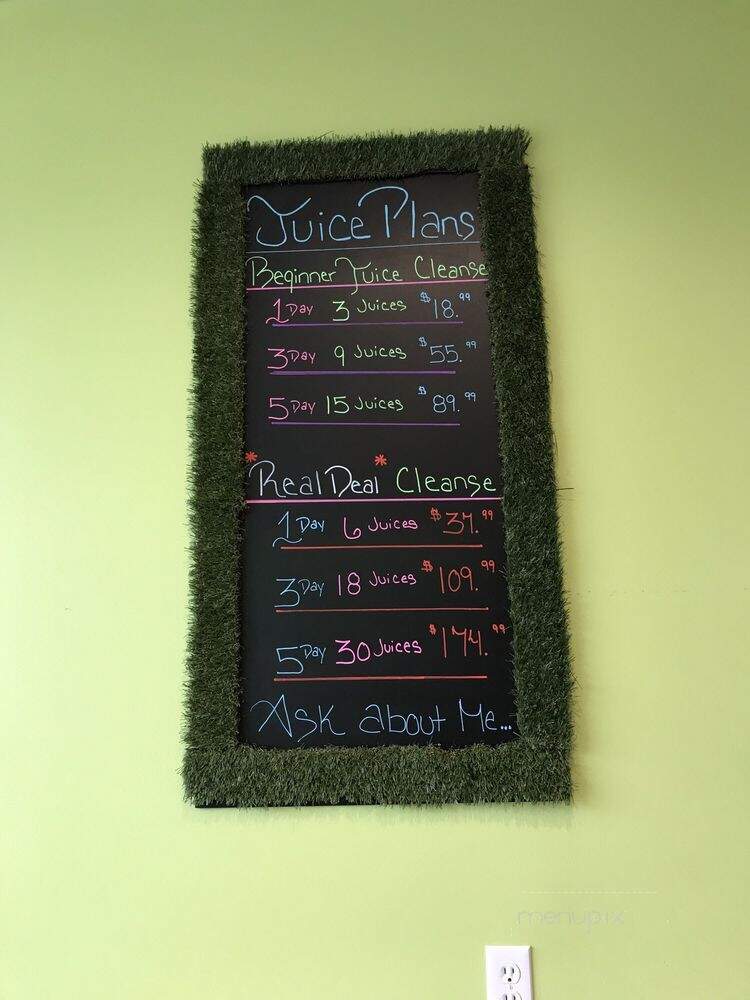 Juice Plans
Beginner Juice Cleanse
1 Day 3 Juices $18.99
3 Day 9 Juices $55.99
5 Day 15 Juices $89.99
*Real Deal* Cleanse
1 Day 6 Juices $37.99
3 Day 18 Juices $109.99
5 Day 30 Juices $174.99
Ask about Me...
menupix